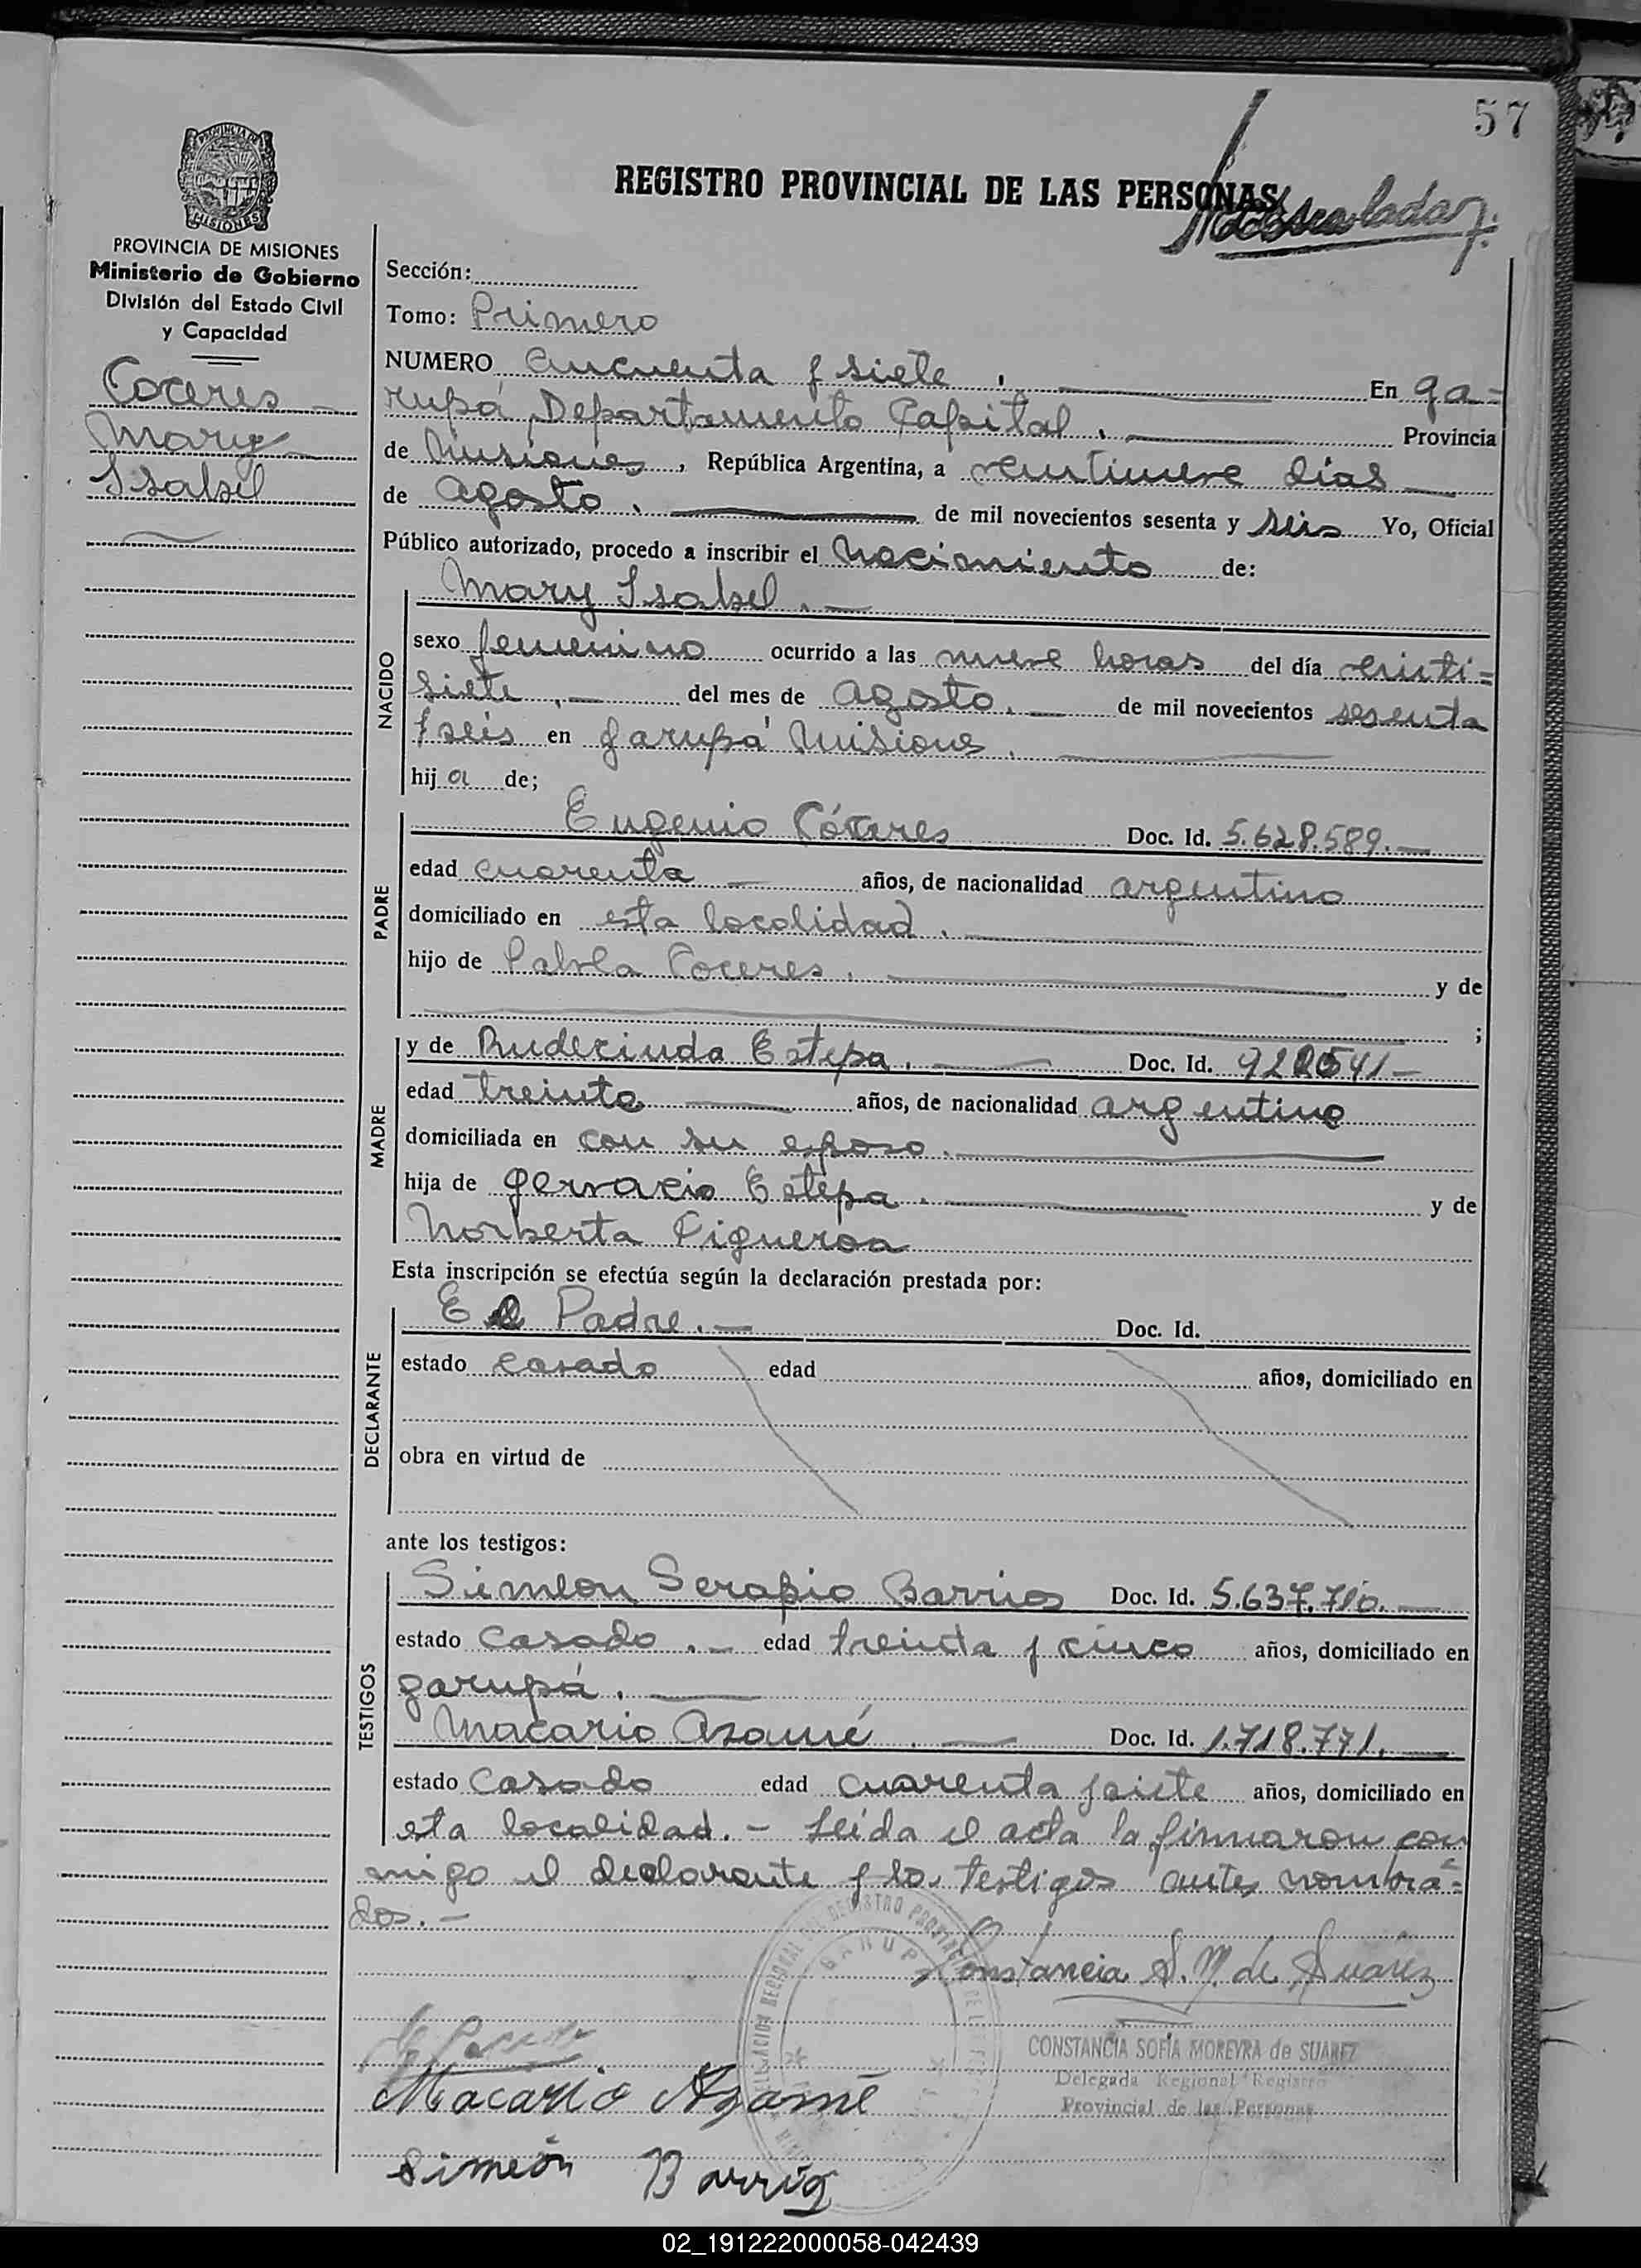 57
REGISTRO PROVINCIAL DE LAS PERSONAS
PROVINCIA DE MISIONES
Ministerio de Gobierno
División del Estado Civil
y Capacidad
Coceres
Mary
Isabel
Sección:
Tomo: Primero
NUMERO Cincuenta y siete . En Ga=
rupá Departamento Capital . Provincia
de Misiones , República Argentina, a veintinueve días
de agosto . de mil novecientos sesenta y seis Yo, Oficial
Público autorizado, procedo a inscribir el Nacimiento de:
NACIDO
Mary Isabel . —
sexo femenino ocurrido a las nueve horas del día veinti=
siete . — del mes de agosto . — de mil novecientos sesenta
y seis en Garupá Misiones .
hij a de;
PADRE
Eugenio Cóceres Doc. Id. 5.628.589. —
edad cuarenta — años, de nacionalidad argentino
domiciliado en esta localidad .
hijo de Pabla Coceres . y de
;
MADRE
y de Rudecinda Estepa . Doc. Id.
edad treinta años, de nacionalidad argentina
domiciliada en con su esposo .
hija de Gervacio Estepa . y de
Norberta Figueroa
Esta inscripción se efectúa según la declaración prestada por:
DECLARANTE
El Padre . — Doc. Id.
estado casado edad años, domiciliado en
obra en virtud de
ante los testigos:
TESTIGOS
Simeon Serapio Barrios Doc. Id. 5.637.710. —
estado Casado . — edad treinta y cinco años, domiciliado en
garupá . —
Macario Azamé . — Doc. Id. 1.718.771. —
estado Casado edad cuarenta y siete años, domiciliado en
esta localidad. — Leída el acta la firmaron con
migo el declarante y los testigos antes nombra=
dos. —
Constancia S. M. de Suárez
CONSTANCIA SOFÍA MOREYRA de SUAREZ
Delegada Regional Registro
Provincial de las Personas
GARUPA
Macario Azamé
Simeón Barrios
02_191222000058-042439